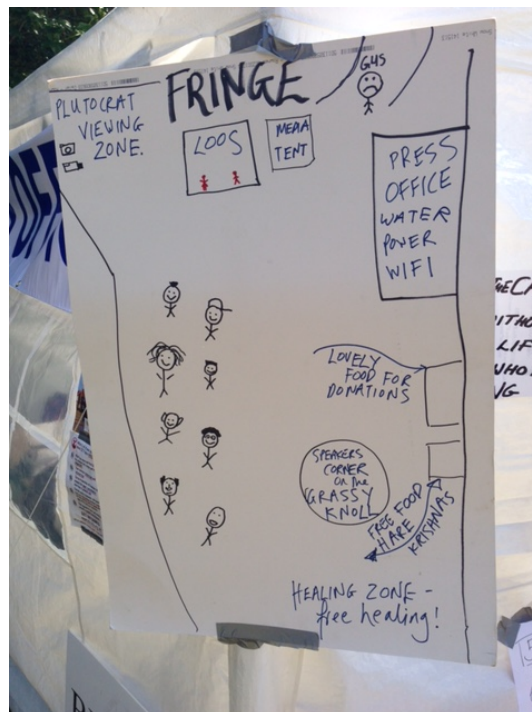 FRINGE
GUS
PLUTOCRAT
VIEWING
ZONE.
LOOS
MEDIA
TENT
PRESS
OFFICE
WATER
POWER
WIFI
LOVELY
FOOD FOR
DONATIONS
SPEAKERS
CORNER
on the
GRASSY
KNOLL
FREE FOOD
HARE
KRISHNAS
HEALING ZONE -
free healing!
LIF